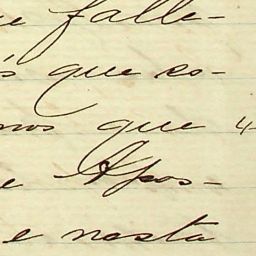 e falle-
s que es-
nos que 4
e Apos-
e nesta